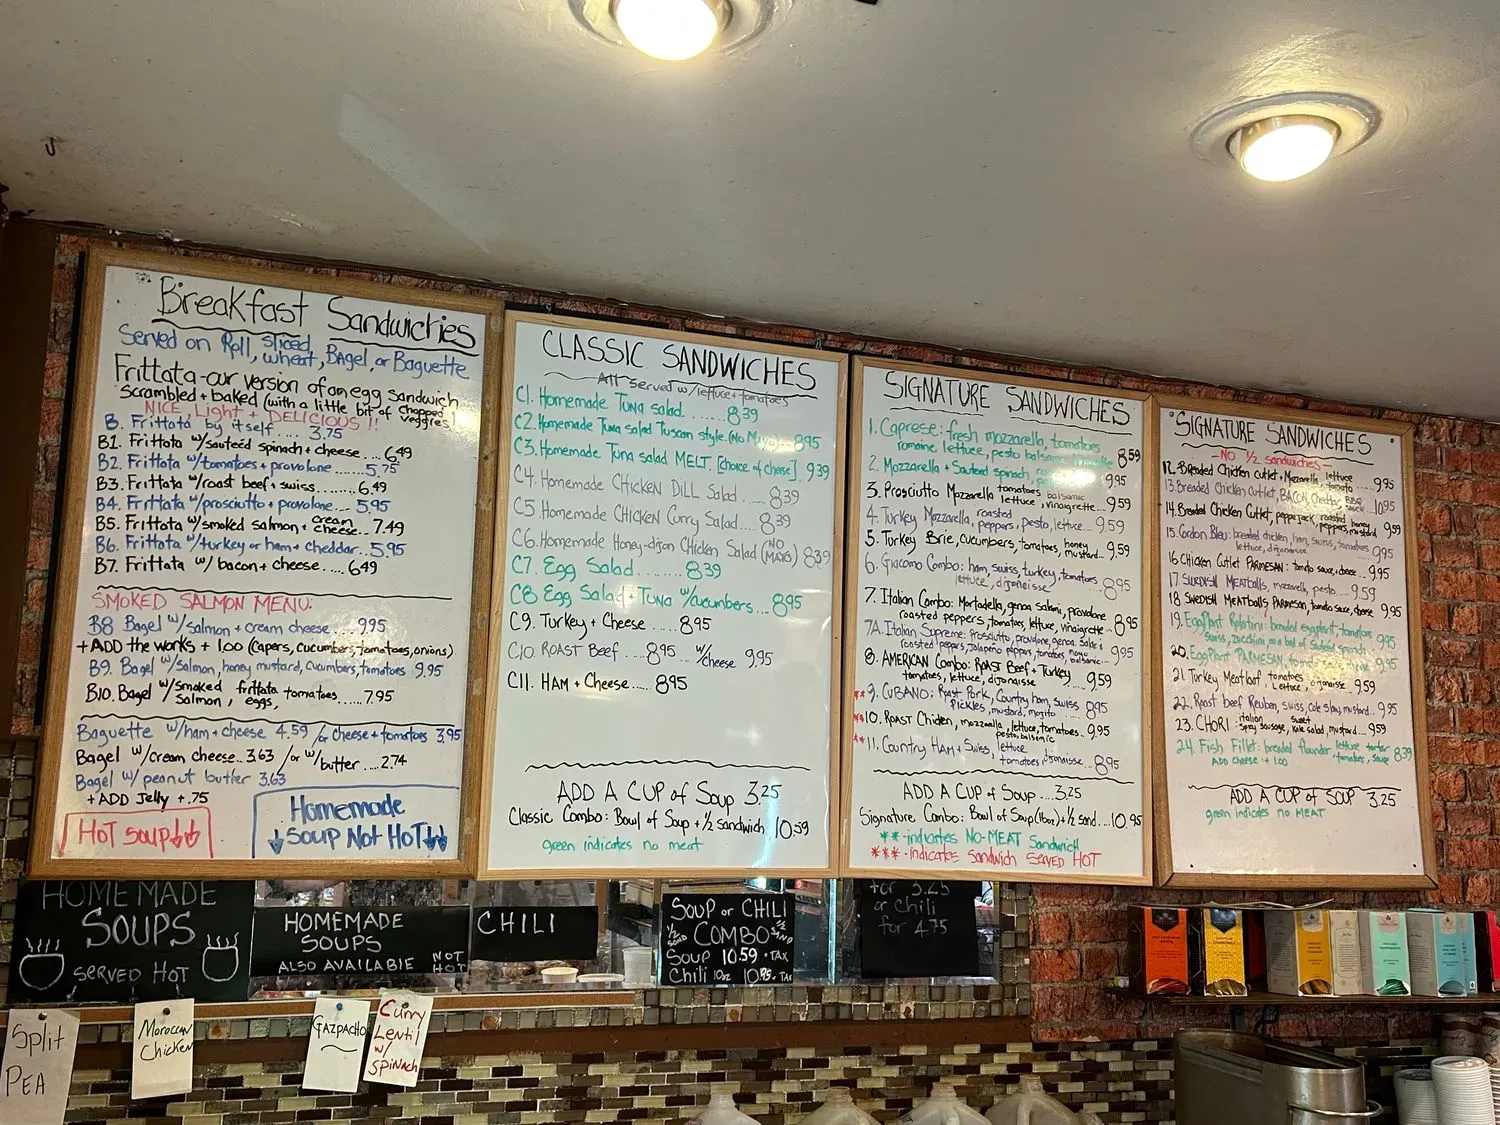 Breakfast Sandwiches
Served on Roll, sliced wheat, Bagel, or Baguette
Frittata-our version of an egg sandwich
Scrambled + baked (with a little bit of chopped veggies)
NICE, Light + DELICIOUS !!
B. Frittata by itself.... 3.75
B1. Frittata w/sauteéd spinach + cheese... 6.49
B2. Frittata w/tomatoes + provolone..... 5.75
B3. Frittata w/roast beef + swiss......... 6.49
B4. Frittata w/prosciutto + provolone.. 5.95
B5. Frittata w/smoked salmon + cream cheese.. 7.49
B6. Frittata w/turkey or ham + cheddar.. 5.95
B7. Frittata w/bacon + cheese.... 6.49
SMOKED SALMON MENU:
B8 Bagel w/salmon + cream cheese.... 9.95
+ADD the works + 1.00 (capers, cucumbers, tomatoes, onions)
B9. Bagel w/salmon, honey mustard, cucumbers, tomatoes 9.95
B10. Bagel w/smoked salmon, frittata eggs, tomatoes...... 7.95
Baguette w/ham + cheese 4.59 /or cheese + tomatoes 3.95
Bagel w/cream cheese.. 3.63 /or w/butter.... 2.74
Bagel w/ peanut butter 3.63
+ ADD Jelly +.75
HOT SOUP
Homemade
SOUP Not HoT
CLASSIC SANDWICHES
All served w/lettuce + tomatoes
C1. Homemade Tuna salad. ...... 8.39
C2. Homemade Tuna salad Tuscan style. (No Mayo) 8.95
C3. Homemade Tuna salad MELT. [choice of cheese]. 9.39
C4. Homemade CHICKEN DILL Salad .... 8.39
C5. Homemade CHICKEN Curry Salad.... 8.39
C6. Homemade Honey-dijon Chicken Salad (NO MAYO) 8.39
C7. Egg Salad......... 8.39
C8 Egg Salad + Tuna w/cucumbers... 8.95
C9. Turkey + Cheese .... 8.95
C10. ROAST Beef .... 8.95 w/cheese 9.95
C11. HAM + Cheese..... 8.95
ADD A CUP of Soup 3.25
Classic Combo: Bowl of Soup + 1/2 sandwich 10.59
green indicates no meat
SIGNATURE SANDWICHES
1. Caprese: fresh mozzarella, tomatoes
romaine lettuce, pesto balsamic vinaigrette 8.59
2. Mozzarella + Sauteed spinach, 9.95
3. Prosciutto Mozzarella tomatoes lettuce, balsamic vinaigrette.. 9.59
4. Turkey Mozzarella, roasted peppers, pesto, lettuce... 9.59
5. Turkey Brie, cucumbers, tomatoes, honey mustard... 9.59
6. Giacomo Combo: ham, swiss, turkey, tomatoes
lettuce, dijonaisse 8.95
7. Italian Combo: Mortadella, genoa salami, provolone
roasted peppers, tomatoes, lettuce, vinaigrette 8.95
7A. Italian Supreme: prosciutto, provolone, genoa
roasted peppers, jalapeño peppers, tomatoes, mayo balsamic.. 9.95
8. AMERICAN Combo: ROAST Beef + Turkey
tomatoes, lettuce, dijonaisse 9.59
** 9. CUBANO: Roast Pork, Country ham, swiss
Pickles, mustard, mojito 8.95
** 10. ROAST Chicken, mozzarella, lettuce, tomatoes..
pesto, balsamic 9.95
** 11. Country HAM + Swiss, lettuce
tomatoes, dijonaisse 8.95
ADD A CUP of Soup ....3.25
Signature Combo: Bowl of Soup (16oz) + 1/2 sand... 10.95
** -indicates NO-MEAT Sandwich
*** -indicates sandwich served HOT
SIGNATURE SANDWICHES
-NO 1/2 sandwiches-
12. Breaded Chicken cutlet + Mozzarella lettuce tomato 9.95
13. Breaded Chicken Cutlet, BACON, Cheddar, BBQ sauce 10.95
14. Breaded Chicken Cutlet, pepperjack, roasted peppers, honey mustard 9.59
15. Cordon Bleu: breaded chicken, ham, swiss, tomatoes
lettuce, dijonaisse 9.95
16 Chicken Cutlet PARMESAN: tomato sauce, cheese.. 9.95
17. SWEDISH MEATballs, mozzarella, pesto..... 9.59
18 SWEDISH MEATBALLS PARMESAN, tomato sauce, cheese 9.95
19. EggPlant Rolatini: breaded eggplant, tomatoes
swiss, zucchini, on a bed of sauteed spinach 9.95
20. EggPlant PARMESAN, 9.95
21. Turkey Meatloaf tomatoes lettuce, dijonaisse 9.59
22. Roast beef Reuben, swiss, cole slaw, mustard.. 9.95
23. CHORI: italian spicy sausage, sweet kale salad, mustard... 9.59
24. Fish Fillet: breaded flounder lettuce tartar
tomatoes, sauce 8.39
ADD cheese + 1.00
ADD A CUP OF SOUP 3.25
green indicates no MEAT
HOMEMADE
SOUPS
SERVED HOT
HOMEMADE
SOUPS
ALSO AVAILABLE NOT HOT
CHILI
SOUP or CHILI
1/2 SAND COMBO 1/2 SAND
Soup 10.59 + TAX
Chili 10oz 10.95 + TAX
for 3.25
or chili
for 4.75
Split
PEA
Moroccan
Chicken
GAZPACHO
Curry
Lentil
w/
SPINACH